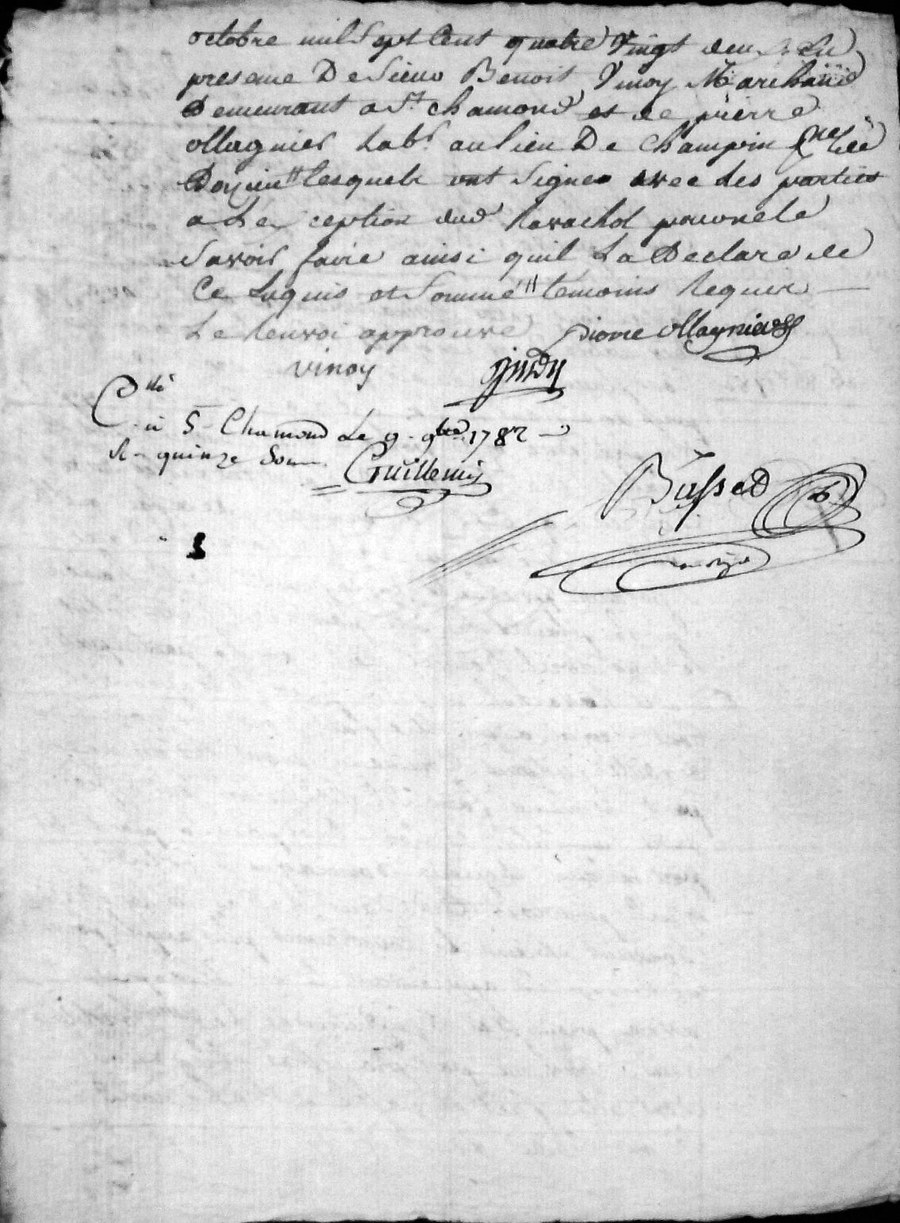 octobre mil Sept Cent quatre Vingt deux En
presence De Sieur Benoit Vinoy Marchand
Demeurant a St chamond et de pierre
ollagnier Lab.r au lieu De champin
Lesquels ont Signe avec Les parties
a Lexception dud Ravachol pour ne le
Savoir faire ainsi quil La Declare de
Ce Enquis et Sommé temoins Requis
Le Renvoi approuvé pierre ollagnier
vinoy
C.llé
a St Chamond Le 9. 9bre 1782
R. quinze Sous Guillemin